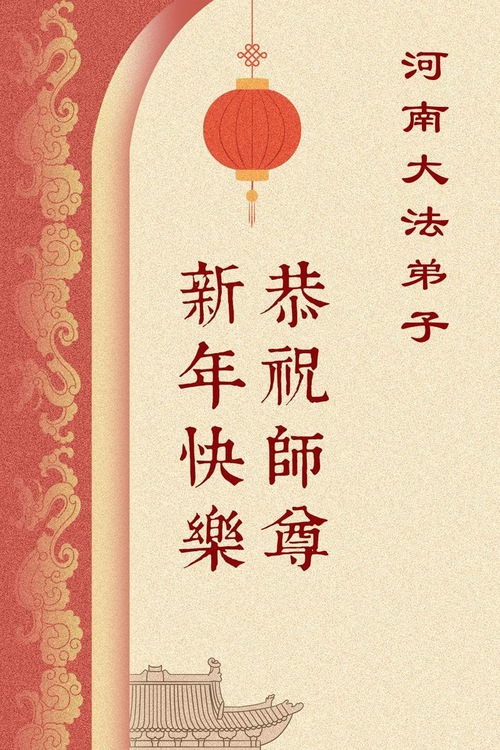 河南大法弟子
恭祝師尊
新年快樂